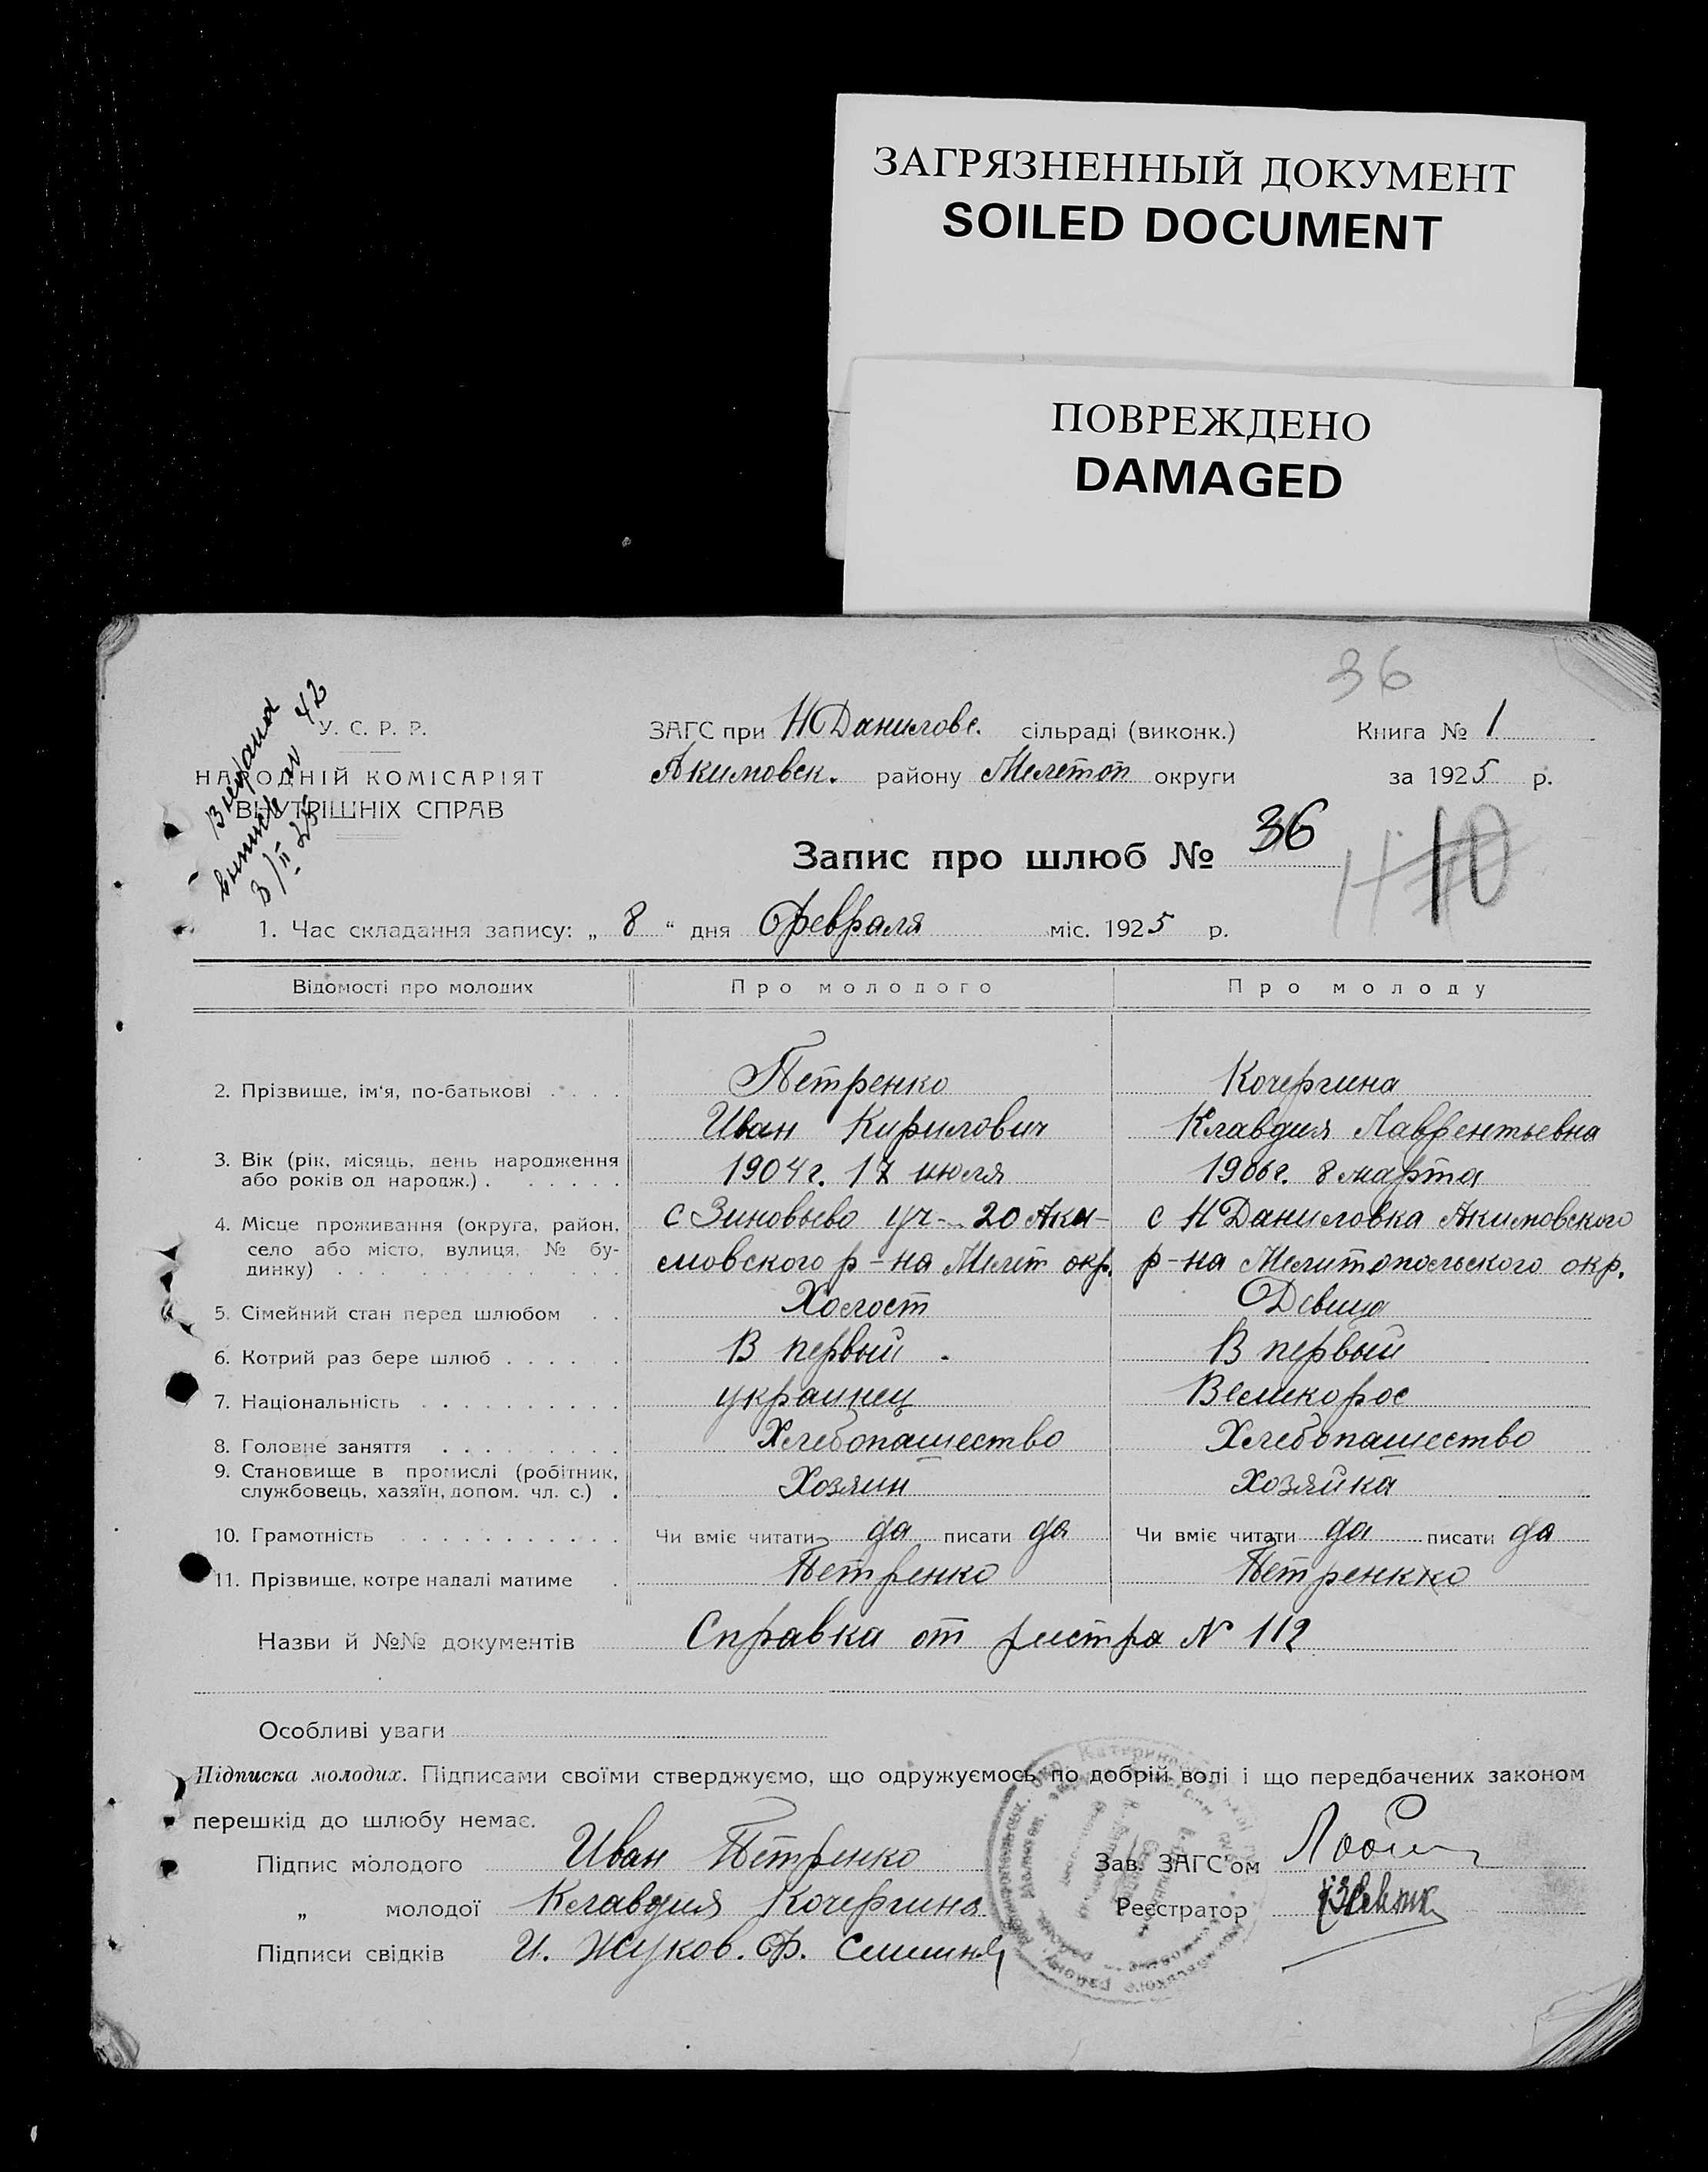 ЗАГРЯЗНЕННЫЙ ДОКУМЕНТ
SOILED DOCUMENT
ПОВРЕЖДЕНО
DAMAGED
36
Выдана
выпись 42
3/II 25
У. С. Р. Р.
НАРОДНІЙ КОМІСАРІЯТ
ВНУТРІШНІХ СПРАВ
ЗАГС при НДанилове. сільраді (виконк.)
Акимовск. району Мелетоп округи
Книга № 1
за 1925 р.
Запис про шлюб № 36
10
1. Час складання запису: „ 8 “ дня Февраля міс. 1925 р.
Відомості про молодих Про молодого Про молоду
2. Прізвище, ім'я, по-батькові Петренко Кочергина
Иван Кирилович Клавдия Лаврентьевна
3. Вік (рік, місяць, день народження
або років од народж.) 1904г. 17 июля 1906г. 8 марта
4. Місце проживання (округа, район, с Зиновьево уч- 20 Аки- с Н Даниловка Акимовского
село або місто, вулиця, № бу-
динку) мовского р-на Мелит окр. р-на Мелитопольского окр.
5. Сімейний стан перед шлюбом Холост Девица
6. Котрий раз бере шлюб В первый В первый
7. Національність украинец Великорос
8. Головне заняття Хлебопашество Хлебопашество
9. Становище в промислі (робітник,
службовець, хазяїн, допом. чл. с.) Хозяин Хозяйка
10. Грамотність Чи вміє читати да писати да Чи вміє читати да писати да
11. Прізвище, котре надалі матиме Петренко Петренко
Назви й №№ документів Справка от рестра № 112
Особливі уваги
Підписка молодих. Підписами своїми стверджуємо, що одружуємось по добрій волі і що передбачених законом
перешкід до шлюбу немає.
Підпис молодого Иван Петренко
Зав. ЗАГС'ом
„ молодої Клавдия Кочергина
Реєстратор
Підписи свідків И. Жуков. Ф.